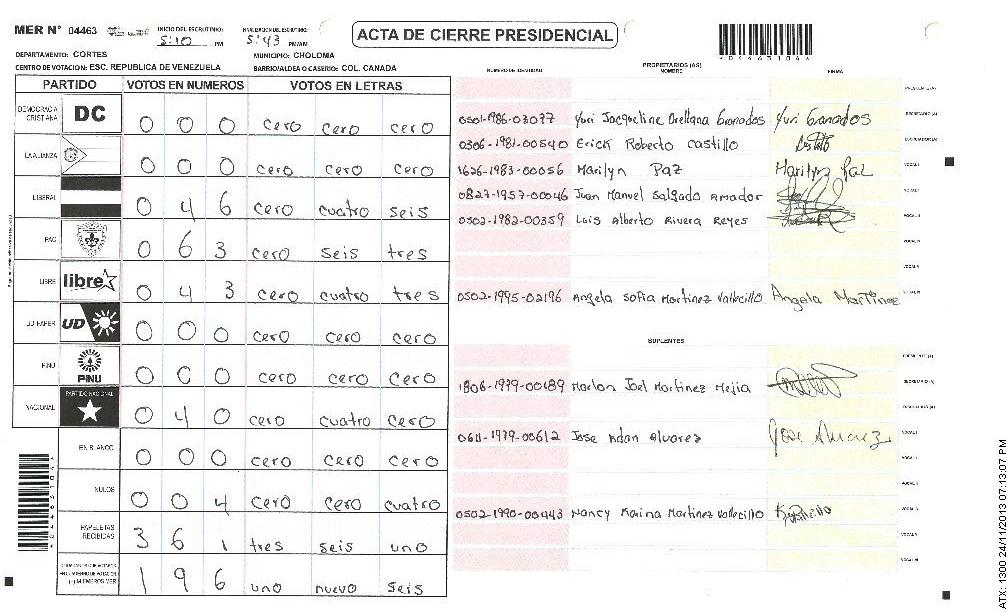 MER Nº 04463
INICIO DEL ESCRUTINIO: 5:10 PM
FINALIZACION DEL ESCRUTINIO: 5:43 PM/AM
ACTA DE CIERRE PRESIDENCIAL
DEPARTAMENTO: CORTES
MUNICIPIO: CHOLOMA
CENTRO DE VOTACION: ESC. REPUBLICA DE VENEZUELA
BARRIO/ALDEA O CASERIO: COL. CANADA
PARTIDO VOTOS EN NUMEROS VOTOS EN LETRAS
DEMOCRACIA CRISTIANA DC 0 0 0 cero cero cero
LA ALIANZA 0 0 0 cero cero cero
LIBERAL 0 4 6 cero cuatro seis
PAC 0 6 3 cero seis tres
LIBRE libre 0 4 3 cero cuatro tres
UD FAPER UD 0 0 0 cero cero cero
PINU PINU 0 0 0 cero cero cero
NACIONAL PARTIDO NACIONAL 0 4 0 cero cuatro cero
EN BLANCO 0 0 0 cero cero cero
NULOS 0 0 4 cero cero cuatro
PAPELETAS RECIBIDAS 3 6 1 tres seis uno
1 9 6 uno nueve seis
NUMERO DE IDENTIDAD PROPIETARIOS (AS) NOMBRE FIRMA
0501-1986-03077 Yuri Jacqueline Orellana Granados Yuri Granados
0306-1981-00540 Erick Roberto Castillo
1626-1983-00056 Marilyn Paz Marilyn Paz
0827-1957-00046 Juan Manuel Salgado Amador
0502-1982-00359 Luis Alberto Rivera Reyes
0502-1995-02196 Angela Sofia Martinez Vallecillo Angela Martinez
SUPLENTES
1806-1979-00189 Marlon Joel Martinez Mejia
0611-1979-00612 Jose Adan Alvarez Jose Alvarez
0502-1990-00443 Nancy Karina Martinez Vallecillo
ATX: 1300 24/11/2013 07:13:07 PM